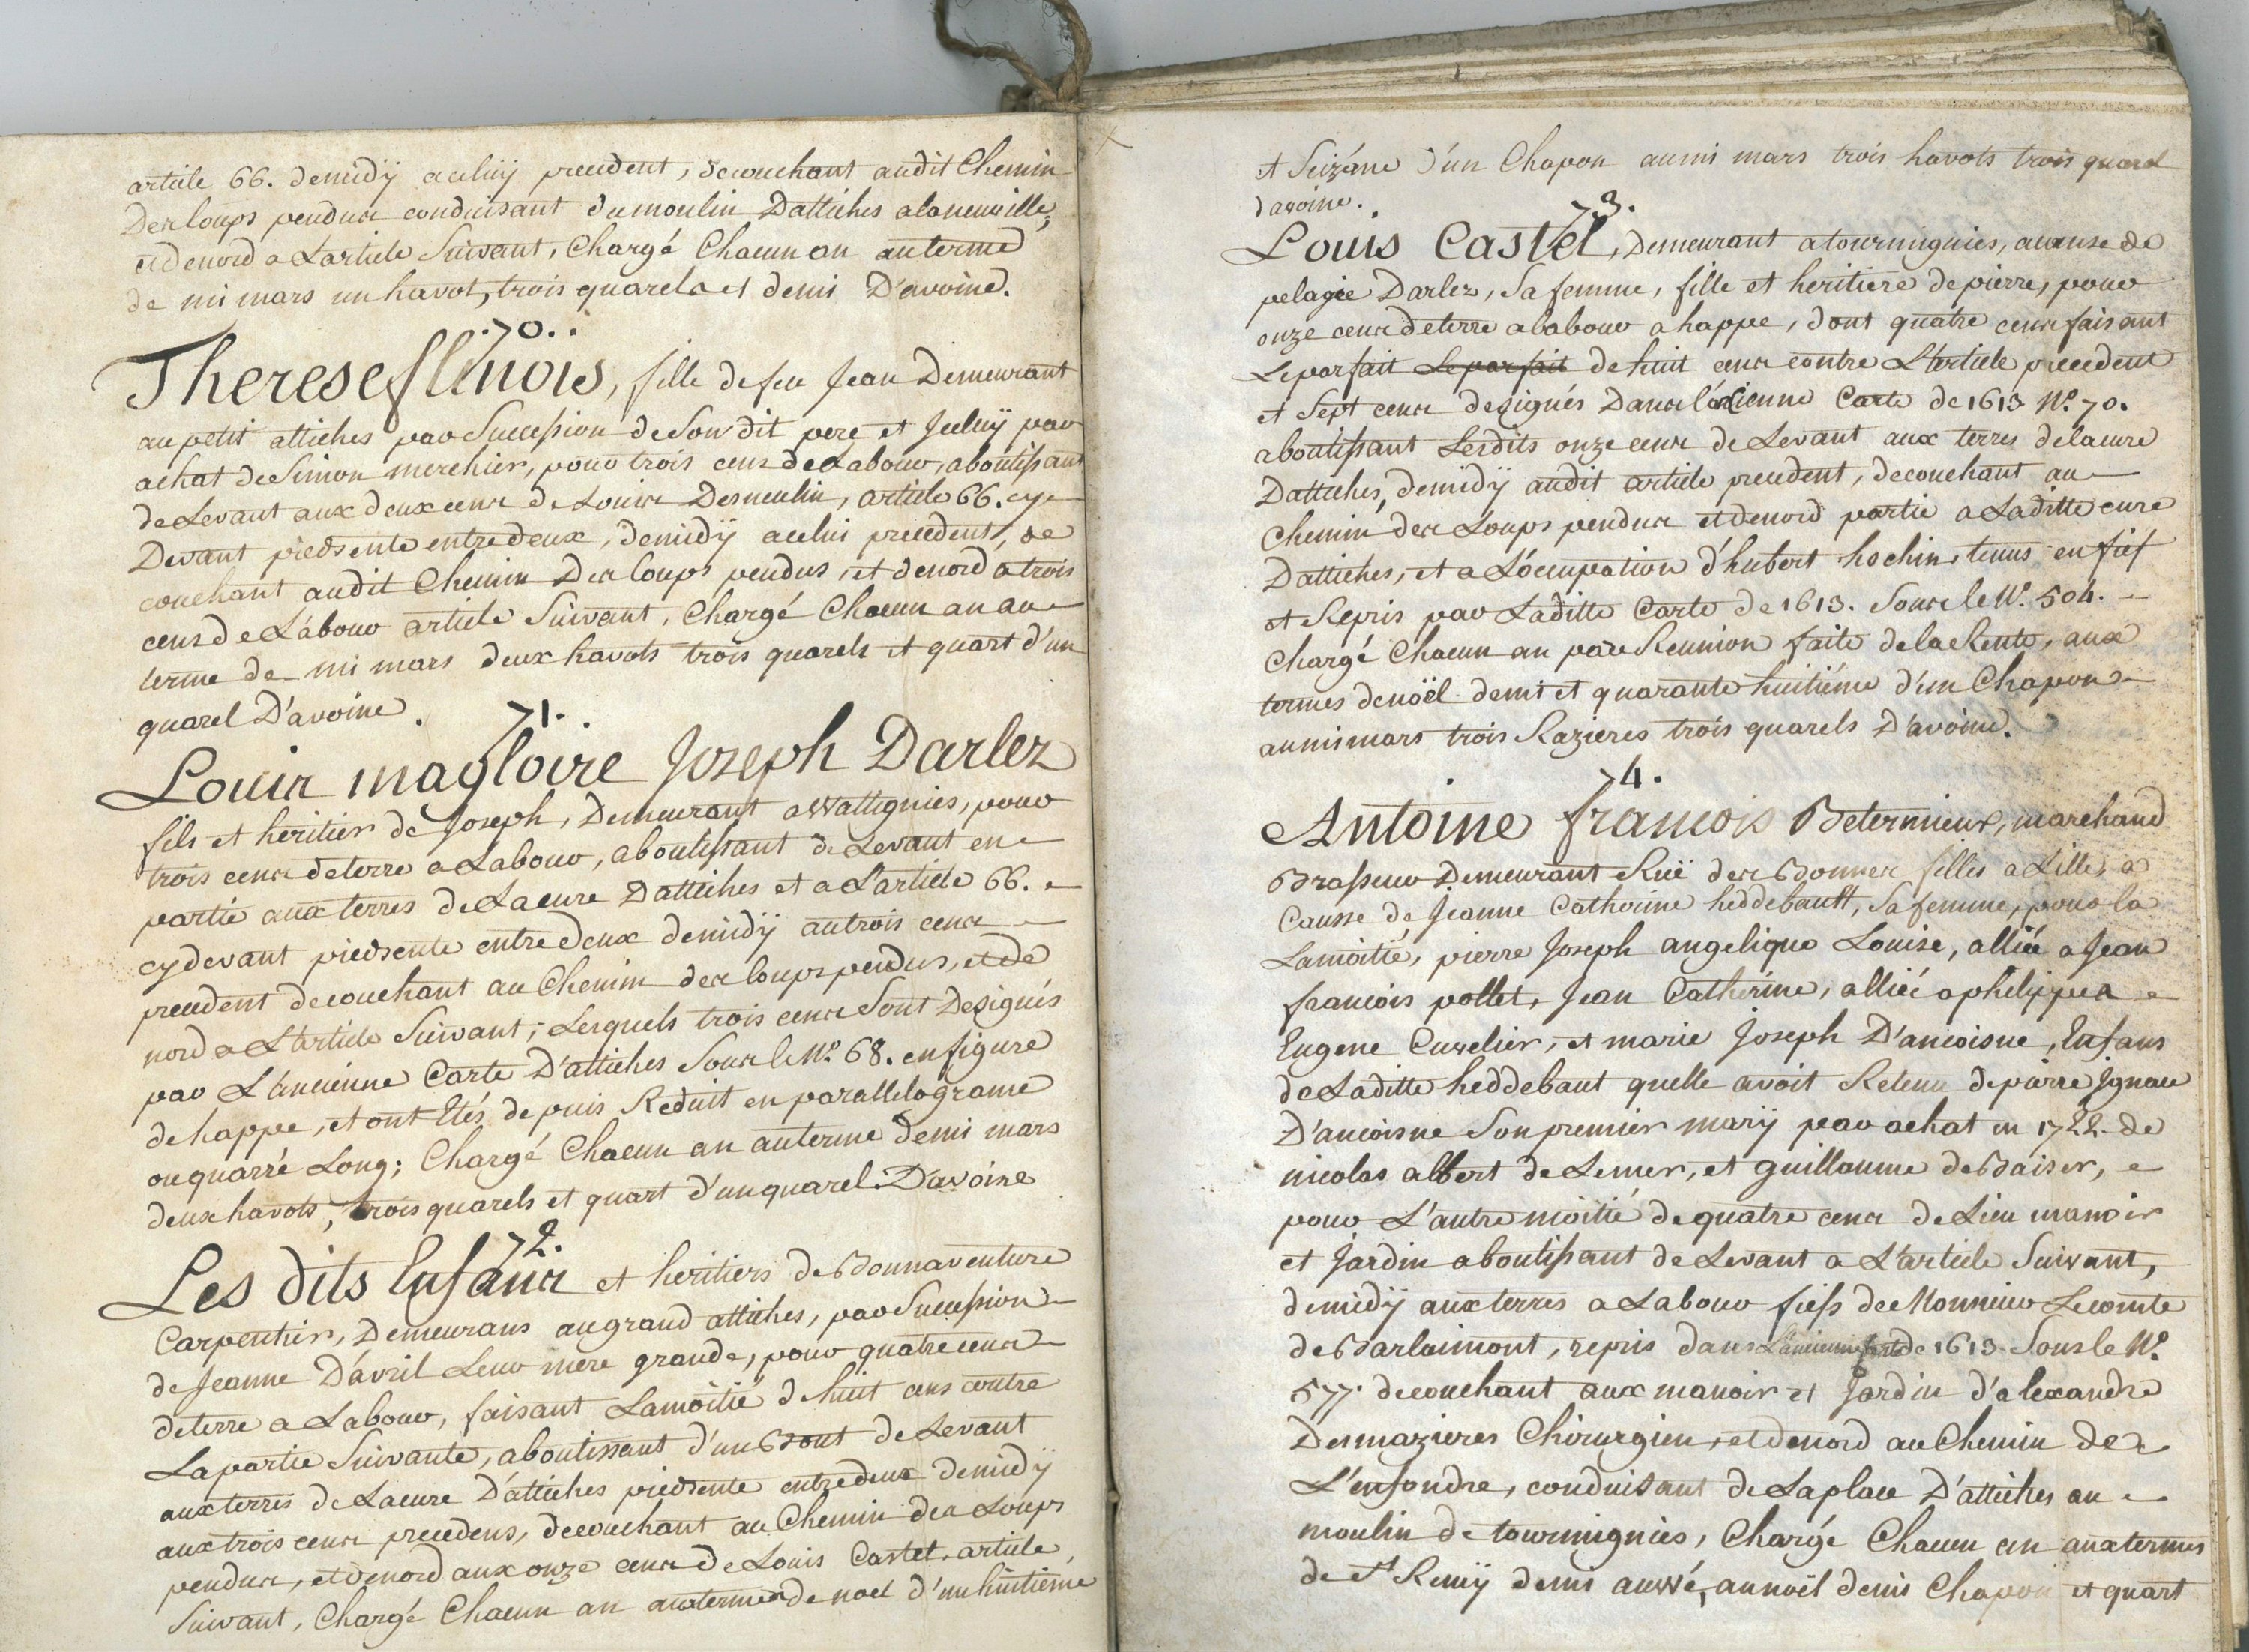 article 66. demidÿ aceluij precedent, decouchant audit Chemin
Des loups pendus conduisant dumoulin Dattiches alaneuville,
etdenord a Larticle Suivant, Chargé Chacun an auterme
de mi mars un havot, trois quarels et demi D'avoine.
70.
Therese flinois, fille defeu Jean Demeurant
aupetit attiches par Succession deSondit pere et Iceluÿ par
achat deSimon merchier, pour trois cens deLabour, aboutissant
deLevant aux deux cens de Louis Desmeulin, article 66. cy
Devant piedsente entredeux, demidÿ acelui precedent, de
couchant audit Chemin Des loups pendus, et denord a trois
cens deLabour article Suivant, Chargé Chacun an au
terme de mi mars deux havots trois quarels et quart d'un
quarel D'avoine.
71.
Louis magloire Joseph Darlez
fils et heritier de Joseph, Demeurant awattignies, pour
trois cens deterre a Labour, aboutissant deLevant en
partie aux terres deLacure Dattiches et a L'article 66.
cydevant piedsente entredeux demidÿ autrois cens
precedent decouchant au Chemin des loups pendus, etde
nord a L'article Suivant, Lesquels trois cens Sont Designés
par L'ancienne Carte D'attiches Sous le No. 68. enfigure
dehappe, et ont Etés depuis Reduit en parallelograme
ouquarré Long; Chargé Chacun an auterme demi mars
deux havots, trois quarels et quart d'unquarel D'avoine
72.
Les dits Enfans et heritiers de Bonnaventure
Carpentier, Demeurans augrand attiches, par Succession
de Jeanne D'avril Leur mere grande, pour quatre cens
deterre a Labour, faisant Lamoitié d'huit cens contre
Lapartie Suivante, aboutissant d'un Bout deLevant
aux terres deLacure D'attiches piedsente entredeux demidÿ
aux trois cens precedens, decouchant au Chemin des Loups
pendus, etdenord aux onze cens de Louis Castel, article
Suivant, Chargé Chacun an auxtermes de noel d'un huitieme
et Seizéme d'un Chapon aumi mars trois havots trois quarel
d'avoine.
73.
Louis Castel, Demeurant atourmignies, acause de
pelagie Darlez, Sa femme, fille et heritiere depierre, pour
onze cens deterre alabour ahappe, dont quatre cens faisant
Leparfait Leparfait dehuit cens contre L'article precedent
et Sept cens designés Dans L'ancienne Carte de 1613 No. 70.
aboutissant Lesdits onze cens deLevant aux terres delacure
Dattiches, demidÿ audit article precedent, decouchant au
Chemin des Loups pendus etdenord partie a Laditte cure
Dattiches, et a L'occupation d'hubert hochin, tenus en fief
et Repris par Laditte Carte de 1613. Sous le No. 504.
Chargé Chacun an par Reunion faite delaRente, aux
termes denoël demi et quarante huitiéme d'un Chapon
aumimars trois Razieres trois quarels D'avoine.
74.
Antoine francois Betermieux, marchand
Brasseur Demeurant Ruë des Bonnes filles a Lille, a
Causse de Jeanne Catherine heddebault, Safemme, pour la
Lamoitié, pierre Joseph angelique Louise, alliée a Jean
francois pollet, Jean Catherine, alliée aphilippes
Eugene Cuvelier, et marie Joseph D'ancoisne, Enfans
deLaditte heddebaut quelle avoit Retenu depierre Ignace
D'ancoisne Sonpremier marÿ par achat en 1722. de
nicolas albert deLemer, et guillaume deBaiser,
pour L'autre moitié dequatre cens deLieu manoir
et Jardin aboutissant deLevant a L'article Suivant,
demidÿ aux terres a Labour fiefs de Monsieur Lecomte
deBarlaimont, repris dans L'ancienne Carte de 1613. Sous le No.
577. decouchant aux manoir et Jardin d'alexandre
Desmazieres Chirurgien, etdenord au Chemin de
L'enfondre, conduisant deLaplace D'attiches au
moulin de tourmignies, Chargé Chacun an auxtermes
de St Remÿ demi auwé, aunoël demi Chapon et quart